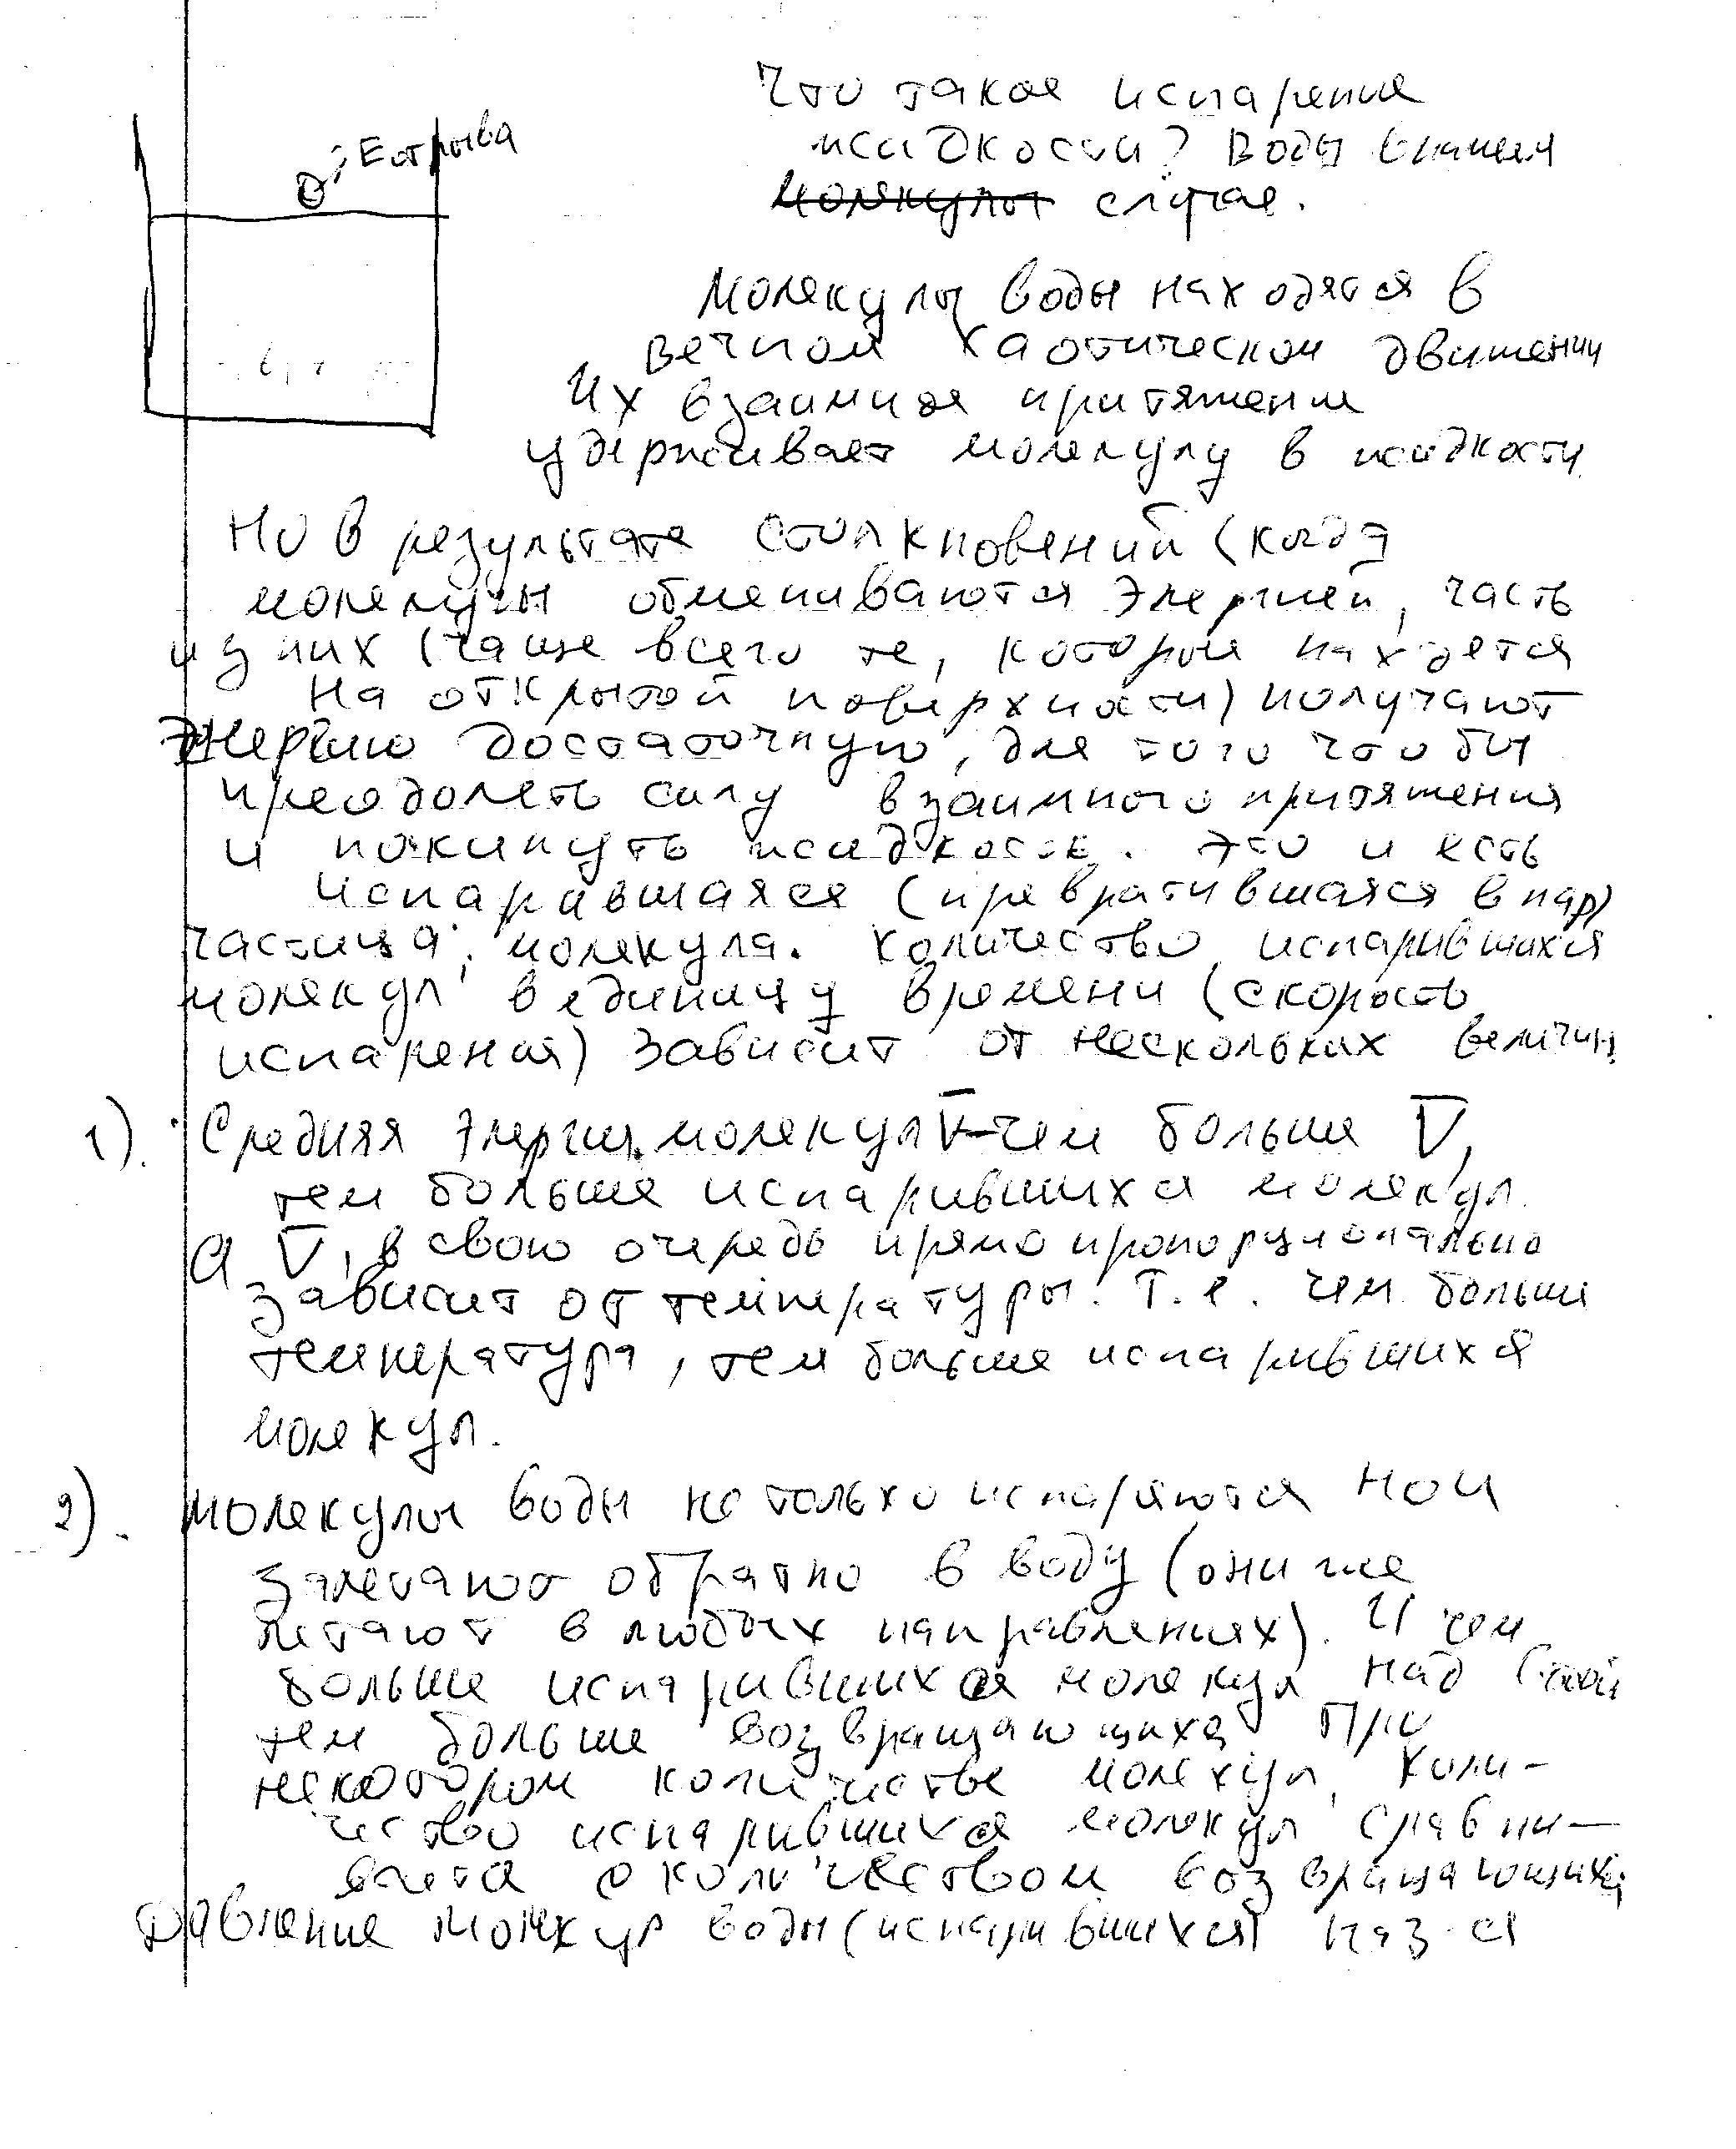 Что такое испарение
жидкости? Воды в нашем
молекулы случае.
Eотрыва
Молекулы воды находятся в
вечном хаотическом движении
Их взаимное притяжение
удерживает молекулу в жидкости.
Но в результате столкновений (когда
молекулы обмениваются энергией, часть
из них (чаще всего те, которые нах-дятся
на открытой поверхности) получают
энергию достаточную, для того чтобы
преодолеть силу взаимного притяжения
и покинуть жидкость. Это и есть
испарившаяся (превратившаяся в пар)
частица, молекула. Количество испарившихся
молекул в единицу времени (скорость
испарения) зависит от нескольких величин
1). Средняя энергия молекул V̅ - чем больше V̅,
тем больше испарившихся молекул.
а V̅, в свою очередь прямо пропорционально
зависит от температуры. Т.е. чем больше
температура, тем больше испарившихся
молекул.
2). Молекулы воды не только испаряются но и
залетают обратно в воду (они же
летают в любых направлениях). И чем
больше испарившихся молекул над
тем больше возвращающихся При
некотором количестве молекул, коли-
чество испарившихся молекул сравни-
вается с количеством возвращающихся
Давление молекул воды (испарившихся) наз-ся